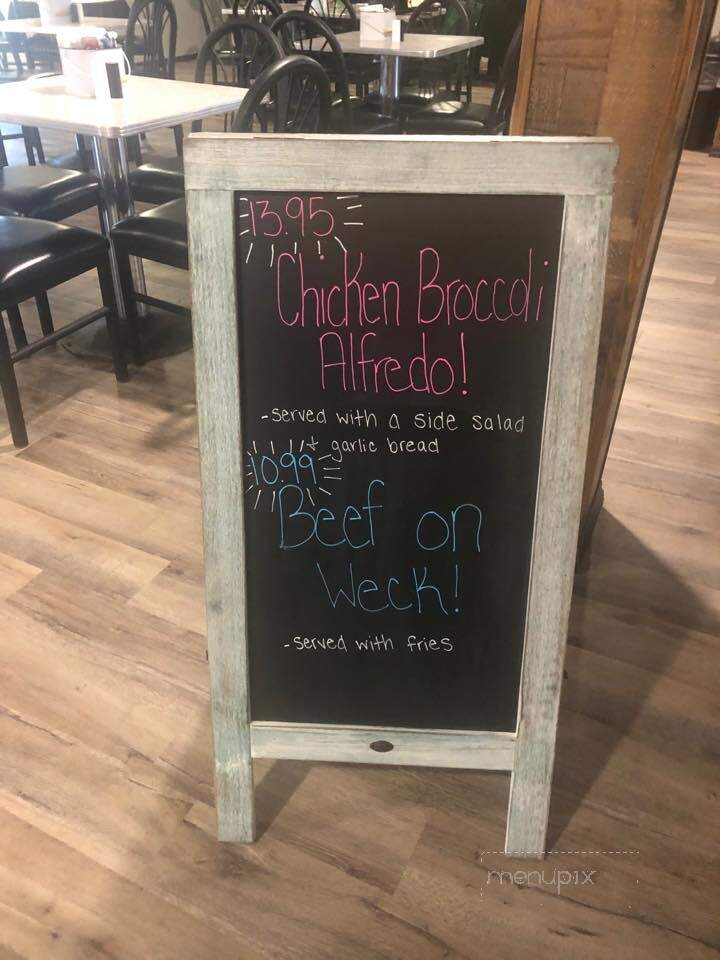 13.95
Chicken Broccoli
Alfredo!
-served with a side salad
+ garlic bread
10.99
Beef on
Weck!
-served with fries
menupix